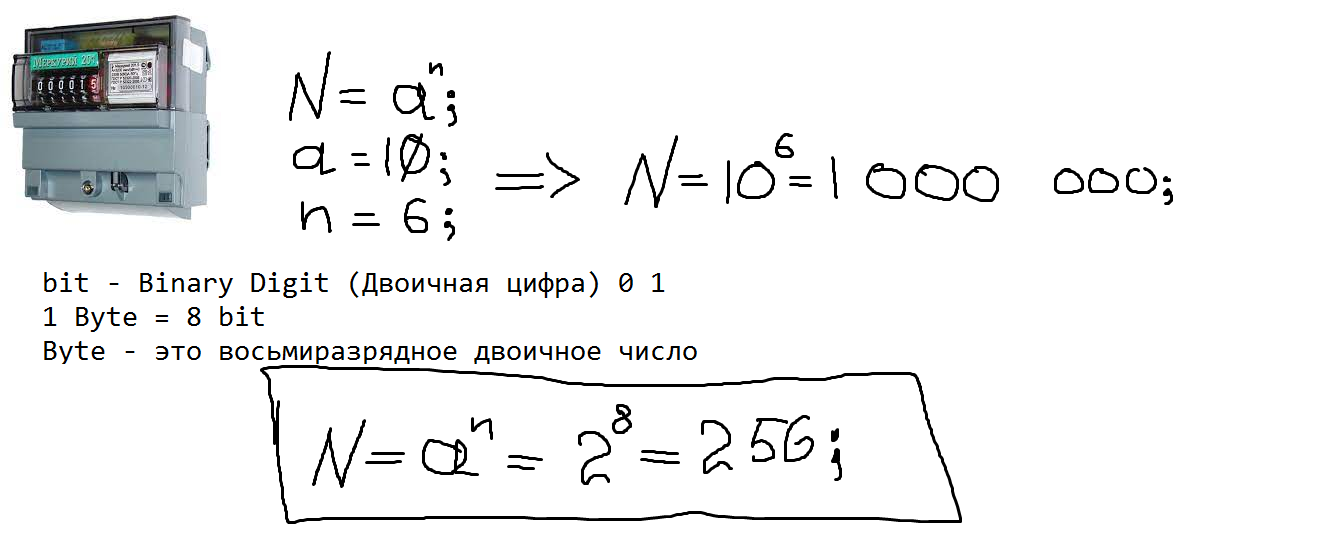 Меркурий 201
000015
N = aⁿ;
a = 10;
n = 6;
=> N = 10⁶ = 1 000 000;
bit - Binary Digit (Двоичная цифра) 0 1
1 Byte = 8 bit
Byte - это восьмиразрядное двоичное число
N = aⁿ = 2⁸ = 256;